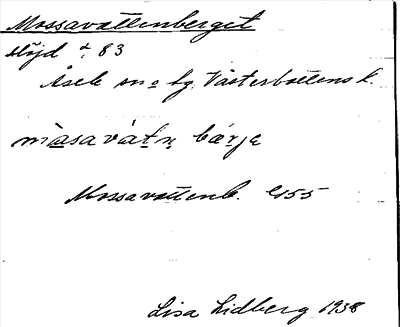 Mossavattenberget
Höjd t. 83
Åsele sn o lg. Västerbottens l.
màsavàtn bárje
Mossavattenb. G55
Lisa Lidberg 1938